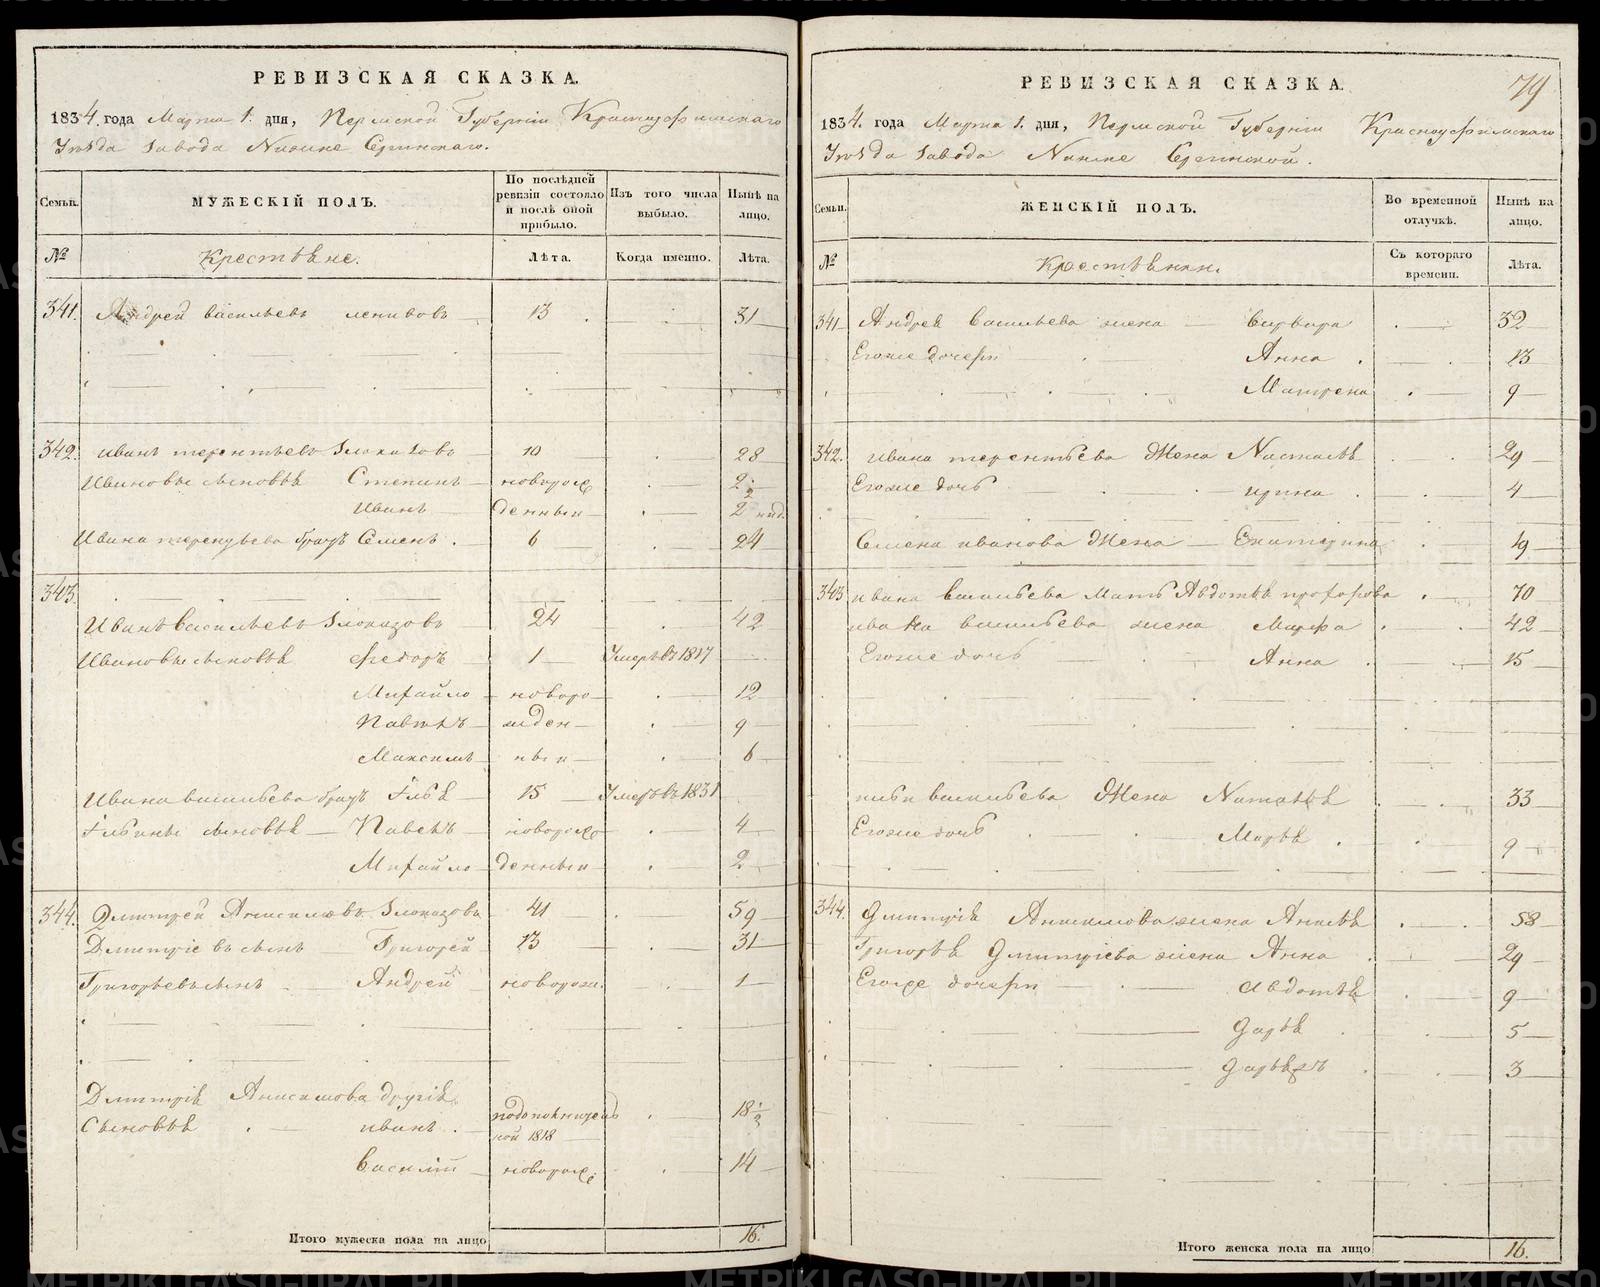 РЕВИЗСКАЯ СКАЗКА.
1834. года Марта 1. дня, Пермской Губернiи Красноуфимскаго
Уѣзда Завода Нижне Сергинскаго.
Семьи.
МУЖЕСКIЙ ПОЛЪ.
По послѣдней ревизiи состояло и послѣ оной прибыло.
Изъ того числа выбыло.
Нынѣ на лицо.
№
Крестьяне.
Лѣта.
Когда именно.
Лѣта.
341. Андрей Васильевъ Ленивовъ 13 31
342. Иванъ Терентьевъ Злоказовъ 10 28
Ивановы сыновья Степанъ новорож 2 1/2
Иванъ денныи 2 нед.
Ивана Терентьева братъ Семенъ 6 24
343.
Иванъ Васильевъ Злоказовъ 24 42
Ивановы сыновья Федоръ 1 Умеръ въ 1817
Михайло новоро 12
Павелъ жден 9
Максимъ ныи 6
Ивана Васильева братъ Илья 15 Умеръ въ 1831
Ильины сыновья Павелъ новорож 4
Михайло денныи 2
344. Дмитрей Анисимовъ Злоказовъ 41 59
Дмитрiевъ сынъ Григорей 13 31
Григорьевъ сынъ Андрей новорож. 1
Дмитрiя Анисимова другiя
Сыновья Иванъ 18 1/2
ной 1818
Василiй новорож. 14
Итого мужеска пола на лицо 16.
79
РЕВИЗСКАЯ СКАЗКА.
1834. года Марта 1. дня, Пермской Губернiи Красноуфимскаго
Уѣзда Завода Нижне Сергинской.
Семьи.
ЖЕНСКIЙ ПОЛЪ.
Во временной отлучкѣ.
Нынѣ на лицо.
№
Крестьянки.
Съ котораго времени.
Лѣта.
341 Андрея Васильева жена Варвара 32
Егоже дочери Анна 13
Матрена 9
342. Ивана Терентьева Жена Наталья 29
Егоже дочь Ирина 4
Семена Иванова Жена Екатерина 19
343 Ивана Васильева Мать Авдотья Прохорова 70
Ивана Васильева жена Марфа 42
Егоже дочь Анна 15
Ильи Васильева Жена Наталья 33
Егоже дочь Марья 9
344. Дмитрiя Анисимова жена Анисья 58
Григорья Дмитрiева жена Анна 29
Егоже дочери Авдотья 9
Дарья 5
3
Итого женска пола на лицо 16.
METRIKI.GASO-URAL.RU